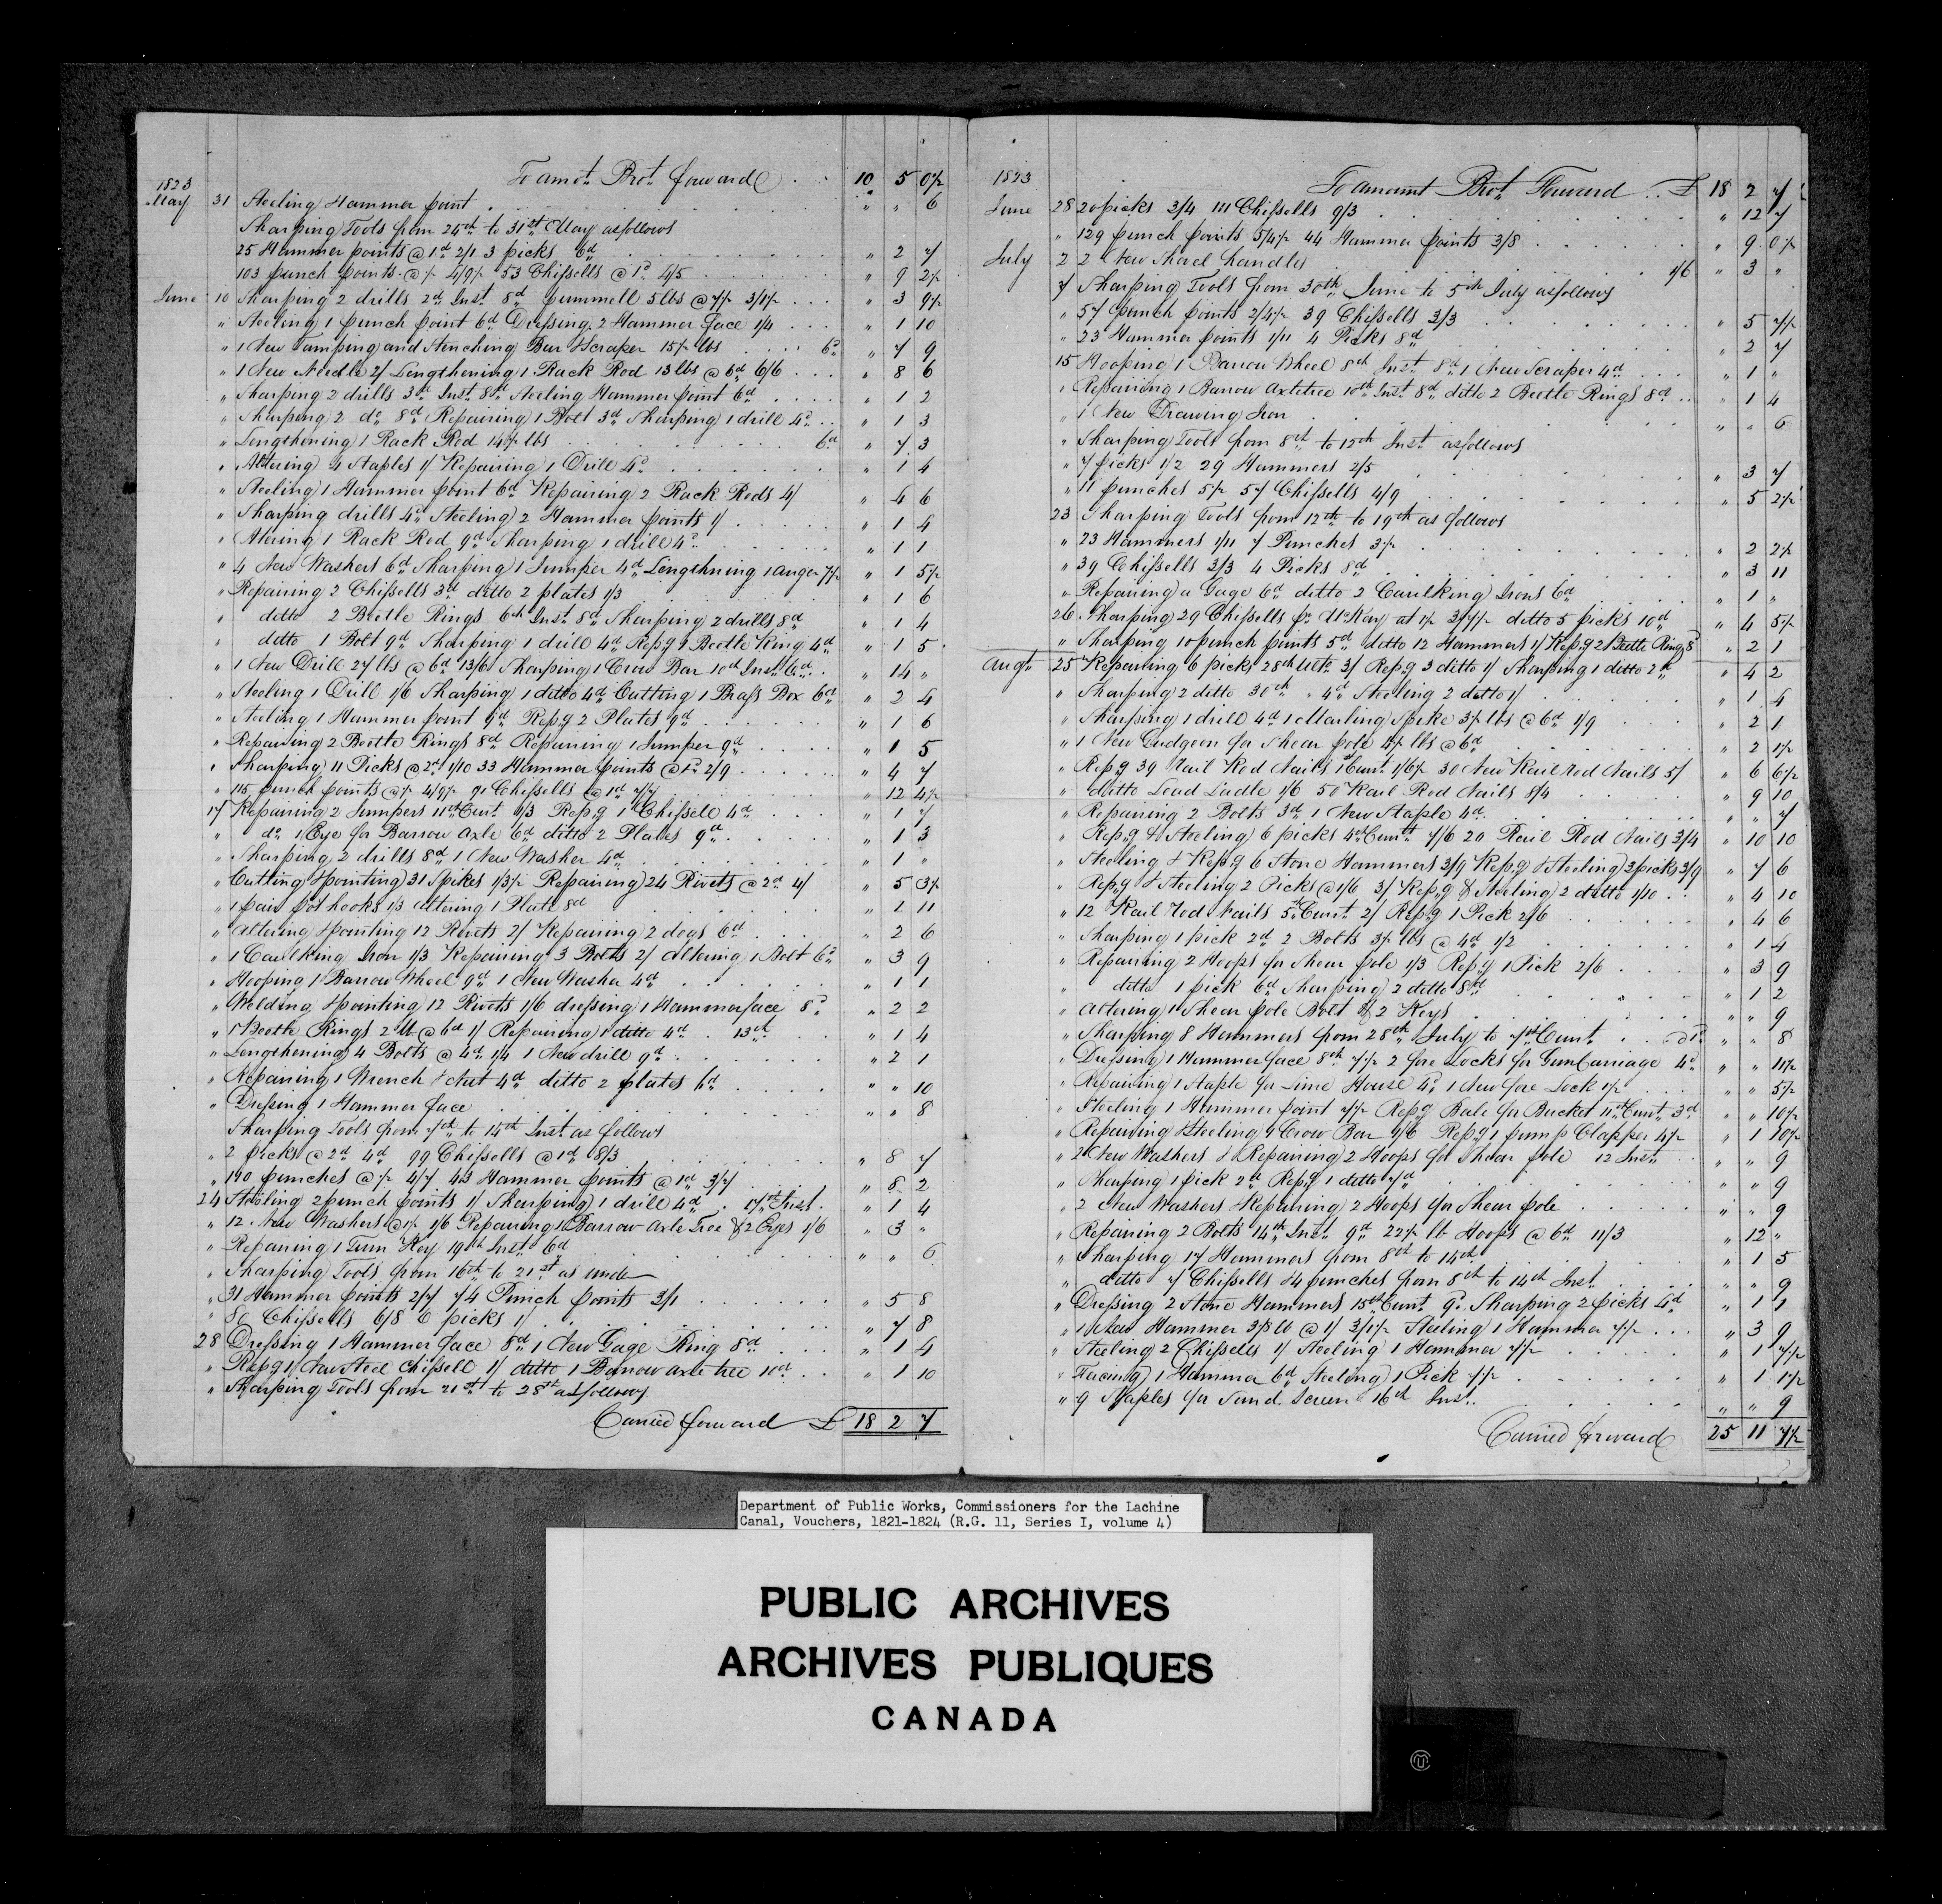 To amot. Brot. forward . . 10 5 0½
1823 May 31 Steeling Hammer point . " " 6
Sharping Tools from 24th to 31st May as follows
25 Hammer points @ 1d 2/1 3 picks 6d " 2 7
103 punch points @ ½ 4/9½ 53 Chissells @ 1d 4/5 " 9 2½
June 10 Sharping 2 drills 2d Inst. 8d 5 lbs @ 7½ 3/1½ " 3 9½
" Steeling 1 punch point 6d Dressing 2 Hammer face 1/4 " 1 10
" 1 New Tamping and Stenching Bar & Scraper 15½ lbs 6d " 7 9
" 1 New Needle 2/ Lengthening 1 Rack Rod 13 lbs @ 6d 6/6 " 8 6
" Sharping 2 drills 3d Inst. 8d Steeling Hammer point 6d " 1 2
" Sharping 2 do 8d Repairing 1 Bolt 3d Sharping 1 drill 4d " 1 3
" Lengthening 1 Rack Rod 14½ lbs 6d " 7 3
" Altering 4 Staples 1/ Repairing 1 Drill 4d " 1 4
" Steeling 1 Hammer point 6d Repairing 2 Rack Rods 4/ " 4 6
" Sharping drills 4d Steeling 2 Hammer points 1/ " 1 4
" Altering 1 Rack Rod 9d Sharping 1 drill 4d " 1 1
" 4 New Washers 6d Sharping 1 Jumper 4d Lengthning 1 auger 7½ " 1 5½
" Repairing 2 Chissells 3d ditto 2 plates 1/3 " 1 6
" ditto 2 Beetle Rings 6th Inst. 8d Sharping 2 drills 8d " 1 4
" ditto 1 Bolt 9d Sharping 1 drill 4d Repg 1 Beetle Ring 4d " 1 5
" 1 New Drill 27 lbs @ 6d 13/6 Sharping 1 Crow Bar 10th Inst. 6d " 14 "
" Steeling 1 Drill 1/6 Sharping 1 ditto 4d Cutting 1 Brass Box 6d " 2 4
" Steeling 1 Hammer point 9d Repg 2 Plates 9d " 1 6
" Repairing 2 Beetle Rings 8d Repairing 1 Jumper 9d " 1 5
" Sharping 11 Picks @ 2d 1/10 33 Hammer points @ 1d 2/9 " 4 7
" 115 punch points @ ½ 4/9½ 91 Chissells @ 1d 7/7 " 12 4½
17 Repairing 2 Jumpers 11th Curt. 1/3 Repg 1 Chissell 4d " 1 7
" do 1 Eye for Barrow Axle 6d ditto 2 Plates 9d " 1 3
" Sharping 2 drills 8d 1 New Washer 4d " 1 "
" Cutting & pointing 31 Spikes 1/3½ Repairing 24 Rivets @ 2d 4/ " 5 3½
" 1 pair pot hooks 1/3 altering 1 Plate 8d " 1 11
" altering & pointing 12 Rivets 2/ Repairing 2 dogs 6d " 2 6
" 1 Caulking Iron 1/3 Repairing 3 Bolts 2/ altering 1 Bolt 6d " 3 9
" Hooping 1 Barrow Wheel 9d 1 New Washer 4d " 1 1
" Welding & pointing 12 Rivets 1/6 dressing 1 Hammer face 8d " 2 2
" 1 Beetle Rings 2 lb @ 6d 1/ Repairing 1 ditto 4d 13th " 1 4
" Lengthening 4 Bolts @ 4d 1/4 1 New drill 9d " 2 1
" Repairing 1 Wrench & Nut 4d ditto 2 plates 6d " " 10
" Dressing 1 Hammer face " " 8
Sharping Tools from 7th to 14th Inst. as follows
" 2 Picks @ 2d 4d 99 Chissells @ 1d 8/3 " 8 7
" 110 punches @ ½ 4/7 43 Hammer points @ 1d 3/7 " 8 2
24 Steeling 2 punch points 1/ Sharping 1 drill 4d 17th Inst. " 1 4
" 12 New Washers @ 1½ 1/6 Repairing 1 Barrow Axle Tree & 2 Eyes 1/6 " 3 "
" Repairing 1 Turn Key 19th Inst. 6d " " 6
" Sharping Tools from 16th to 21st as under
" 31 Hammer points 2/7 74 Punch points 3/1 " 5 8
" 80 Chissells 6/8 6 picks 1/ " 7 8
28 Dressing 1 Hammer face 8d 1 New Gage Ring 8d " 1 4
" Repg 1 New Steel Chissell 1/ ditto 1 Barrow axle tree 10d " 1 10
" Sharping Tools from 21st to 28th as follows
Carried forward £ 18 2 7
1823 To amount Brot. Forward . . £ 18 2 7
June 28 20 picks 3/4 111 Chissells 9/3 " 12 7
" 129 punch points 5/4½ 44 Hammer points 3/8 " 9 0½
July 2 2 New Shovel handles 1/6 " 3 "
7 Sharping Tools from 30th June to 5th July as follows
" 57 punch points 2/4½ 39 Chissells 3/3 " 5 7½
" 23 Hammer points 1/11 4 Picks 8d " 2 7
15 Hooping 1 Barrow Wheel 8th Inst 8d 1 New Scraper 4d " 1 "
" Repairing 1 Barrow Axletree 10th Inst. 8d ditto 2 Beetle Rings 8d " 1 4
" 1 New Drawing Iron " " 6
" Sharping Tools from 8th to 12th Inst as follows
" 7 picks 1/2 29 Hammers 2/5 " 3 7
" 11 punches 5½ 57 Chissells 4/9 " 5 2½
23 Sharping Tools from 12th to 19th as follows
" 23 Hammers 1/11 7 Punches 3½ " 2 2½
" 39 Chissells 3/3 4 Picks 8d " 3 11
" Repairing a Gage 6d ditto 2 Caulking Irons 6d " 1 "
26 Sharping 29 Chissells pr McKay at 1½ 3/7½ ditto 5 picks 10d " 4 5½
" Sharping 10 punch points 5d ditto 12 Hammers 1/ Repg 2 Beetle Rings 8d " 2 1
Augt. 25 Repairing 6 picks 28th Ulto 3/ Repg 3 ditto 1/ Sharping 1 ditto 2d " 4 2
" Sharping 2 ditto 30th " 4d Steeling 2 ditto 1/ " 1 4
" Sharping 1 drill 4d 1 Marling Spike 3½ lbs @ 6d 1/9 " 2 1
" 1 New Gudgeon for Shear pole 4½ lbs @ 6d " 2 1½
" Repg 39 Rail Rod Nails 1 Curt. 1/6½ 30 New Rail Rod Nails 5/ " 6 6½
" ditto Lead Ladle 1/6 50 Rail Rod Nails 8/4 " 9 10
" Repairing 2 Bolts 3d 1 New Staple 4d " " 7
" Repg & Steeling 6 picks 4th Curt. 7/6 20 Rail Rod Nails 3/4 " 10 10
" Steeling & Repg 6 Stone Hammers 3/9 Repg & Steeling 3 picks 3/9 " 7 6
" Repg & Steeling 2 Picks @ 1/6 3/ Repg & Steeling 2 ditto 1/10 " 4 10
" 12 Rail Rod Nails 5th Curt. 2/ Repg 1 Pick 2/6 " 4 6
" Sharping 1 pick 2d 2 Bolts 3½ lbs @ 4d 1/2 " 1 4
" Repairing 2 Hoops for Shear pole 1/3 Repg 1 Pick 2/6 " 3 9
" ditto 1 pick 6d Sharping 2 ditto 8d " 1 2
" altering 1 Shear pole Bolt & 2 Keys " " 9
" Sharping 8 Hammers from 28th July to 7th Curt. @ 1d " " 8
" Dressing 1 Hammer face 8th 7½ 2 fore Locks for Gun Carriage 4d " " 11½
" Repairing 1 Staple for Lime House 4d 1 New fore Lock 1½ " " 5½
" Steeling 1 Hammer point 7½ Repg Bale for Bucket 11th Curt. 3d " " 10½
" Repairing & Steeling 1 Crow Bar 1/6 Repg 1 pump Clapper 4½ " 1 10½
" 2 New Washers & Repairing 2 Hoops for Shear pole 12 Inst. " " 9
" Sharping 1 pick 2d Repg 1 ditto 7d " " 9
" 2 New Washers & Repairing 2 Hoops for Shear pole " " 9
" Repairing 2 Bolts 14th Inst 9d 22½ lb Hoops @ 6d 11/3 " 12 "
" Sharping 17 Hammers from 8th to 14th " 1 5
" ditto 7 Chissells & 4 punches from 8th to 14th Inst. " " 9
" Dressing 2 Stone Hammers 15th Curt. 9d Sharping 2 picks 4d " 1 1
" 1 New Hammer 3/8 lb @ 1/ 3/1½ Steeling 1 Hammer 7½ " 3 9
" Steeling 2 Chissells 1/ Steeling 1 Hammer 7½ " 1 7½
" Facing 1 Hammer 6d Steeling 1 Pick 7½ " 1 1½
" 9 Staples for Sand Screen 16th Inst. " " 9
Carried forward 25 11 7½
Department of Public Works, Commissioners for the Lachine
Canal, Vouchers, 1821-1824 (R.G. 11, Series I, volume 4)
PUBLIC ARCHIVES
ARCHIVES PUBLIQUES
CANADA